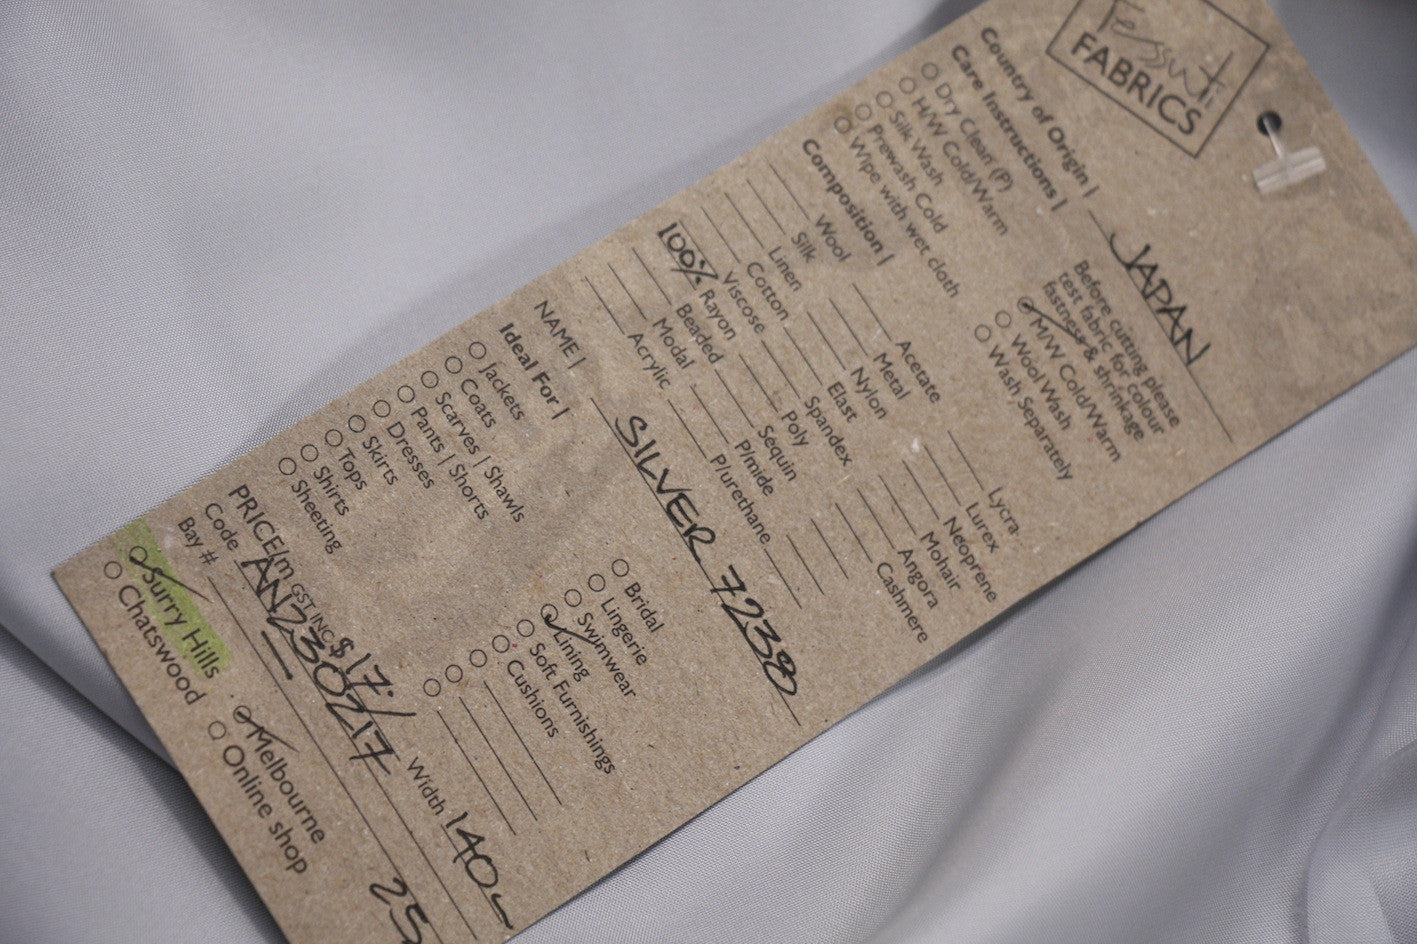 Tessuti
FABRICS
Country of Origin | JAPAN
Care Instructions |
Before cutting please
test fabric for colour
fastness & shrinkage
Dry Clean (P)
H/W Cold/Warm
Silk Wash
Prewash Cold
Wipe with wet cloth
M/W Cold/Warm
Wool Wash
Wash Separately
Composition |
Wool
Silk
Linen
Cotton
Viscose
100% Rayon
Beaded
Modal
Acrylic
Acetate
Metal
Nylon
Elast
Spandex
Poly
Sequin
P/mide
P/urethane
Lycra
Lurex
Neoprene
Mohair
Angora
Cashmere
NAME | SILVER 7238
Ideal For |
Jackets
Coats
Scarves | Shawls
Pants | Shorts
Dresses
Skirts
Tops
Shirts
Sheeting
Bridal
Lingerie
Swimwear
Lining
Soft Furnishings
Cushions
PRICE/m GST INC $17./ Width 140
Code AN230217
Bay # 25
Surry Hills
Chatswood
Melbourne
Online shop